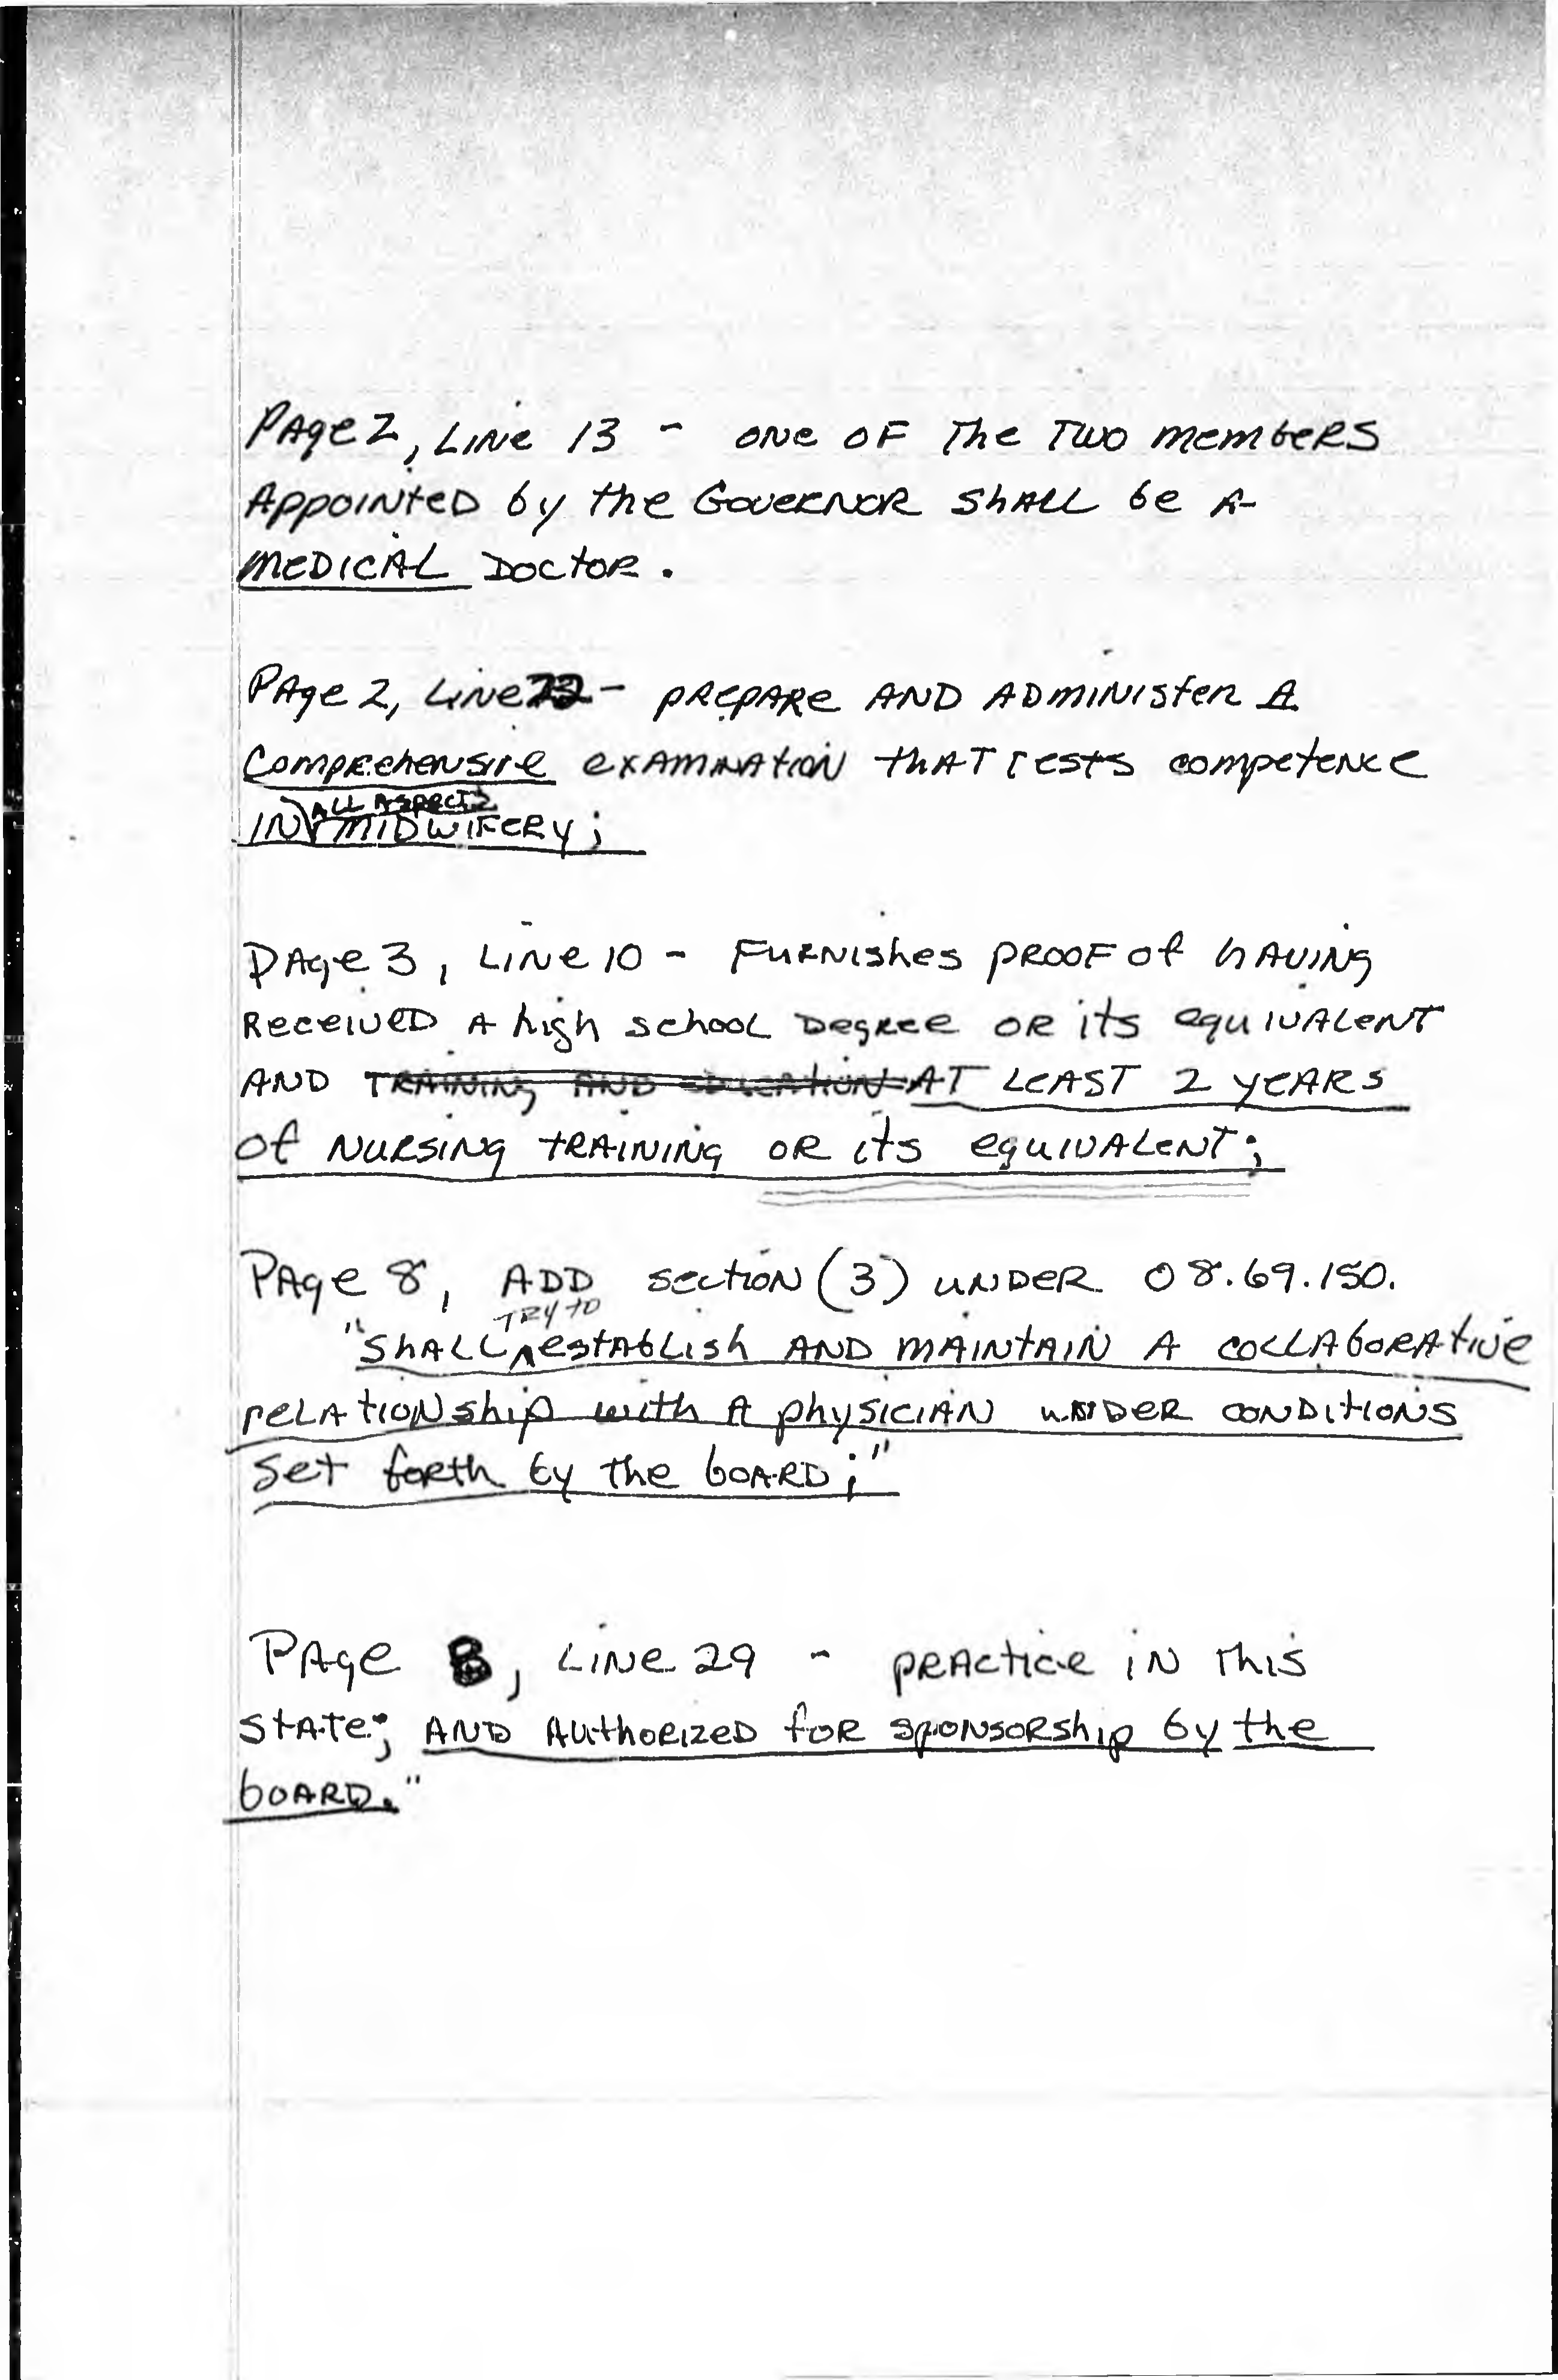 Page 2, Line 13 - one of the two members
appointed by the Governor shall be a
medical doctor.
Page 2, Line 22 - prepare and administer a
comprehensive examination that tests competence
all aspects
in midwifery;
Page 3, Line 10 - furnishes proof of having
received a high school degree or its equivalent
and training and education at least 2 years
of nursing training or its equivalent;
Page 8, add section (3) under 08.69.150.
try to
"shall establish and maintain a collaborative
relationship with a physician under conditions
set forth by the board;"
Page 8, Line 29 - practice in this
state; and authorized for sponsorship by the
board."